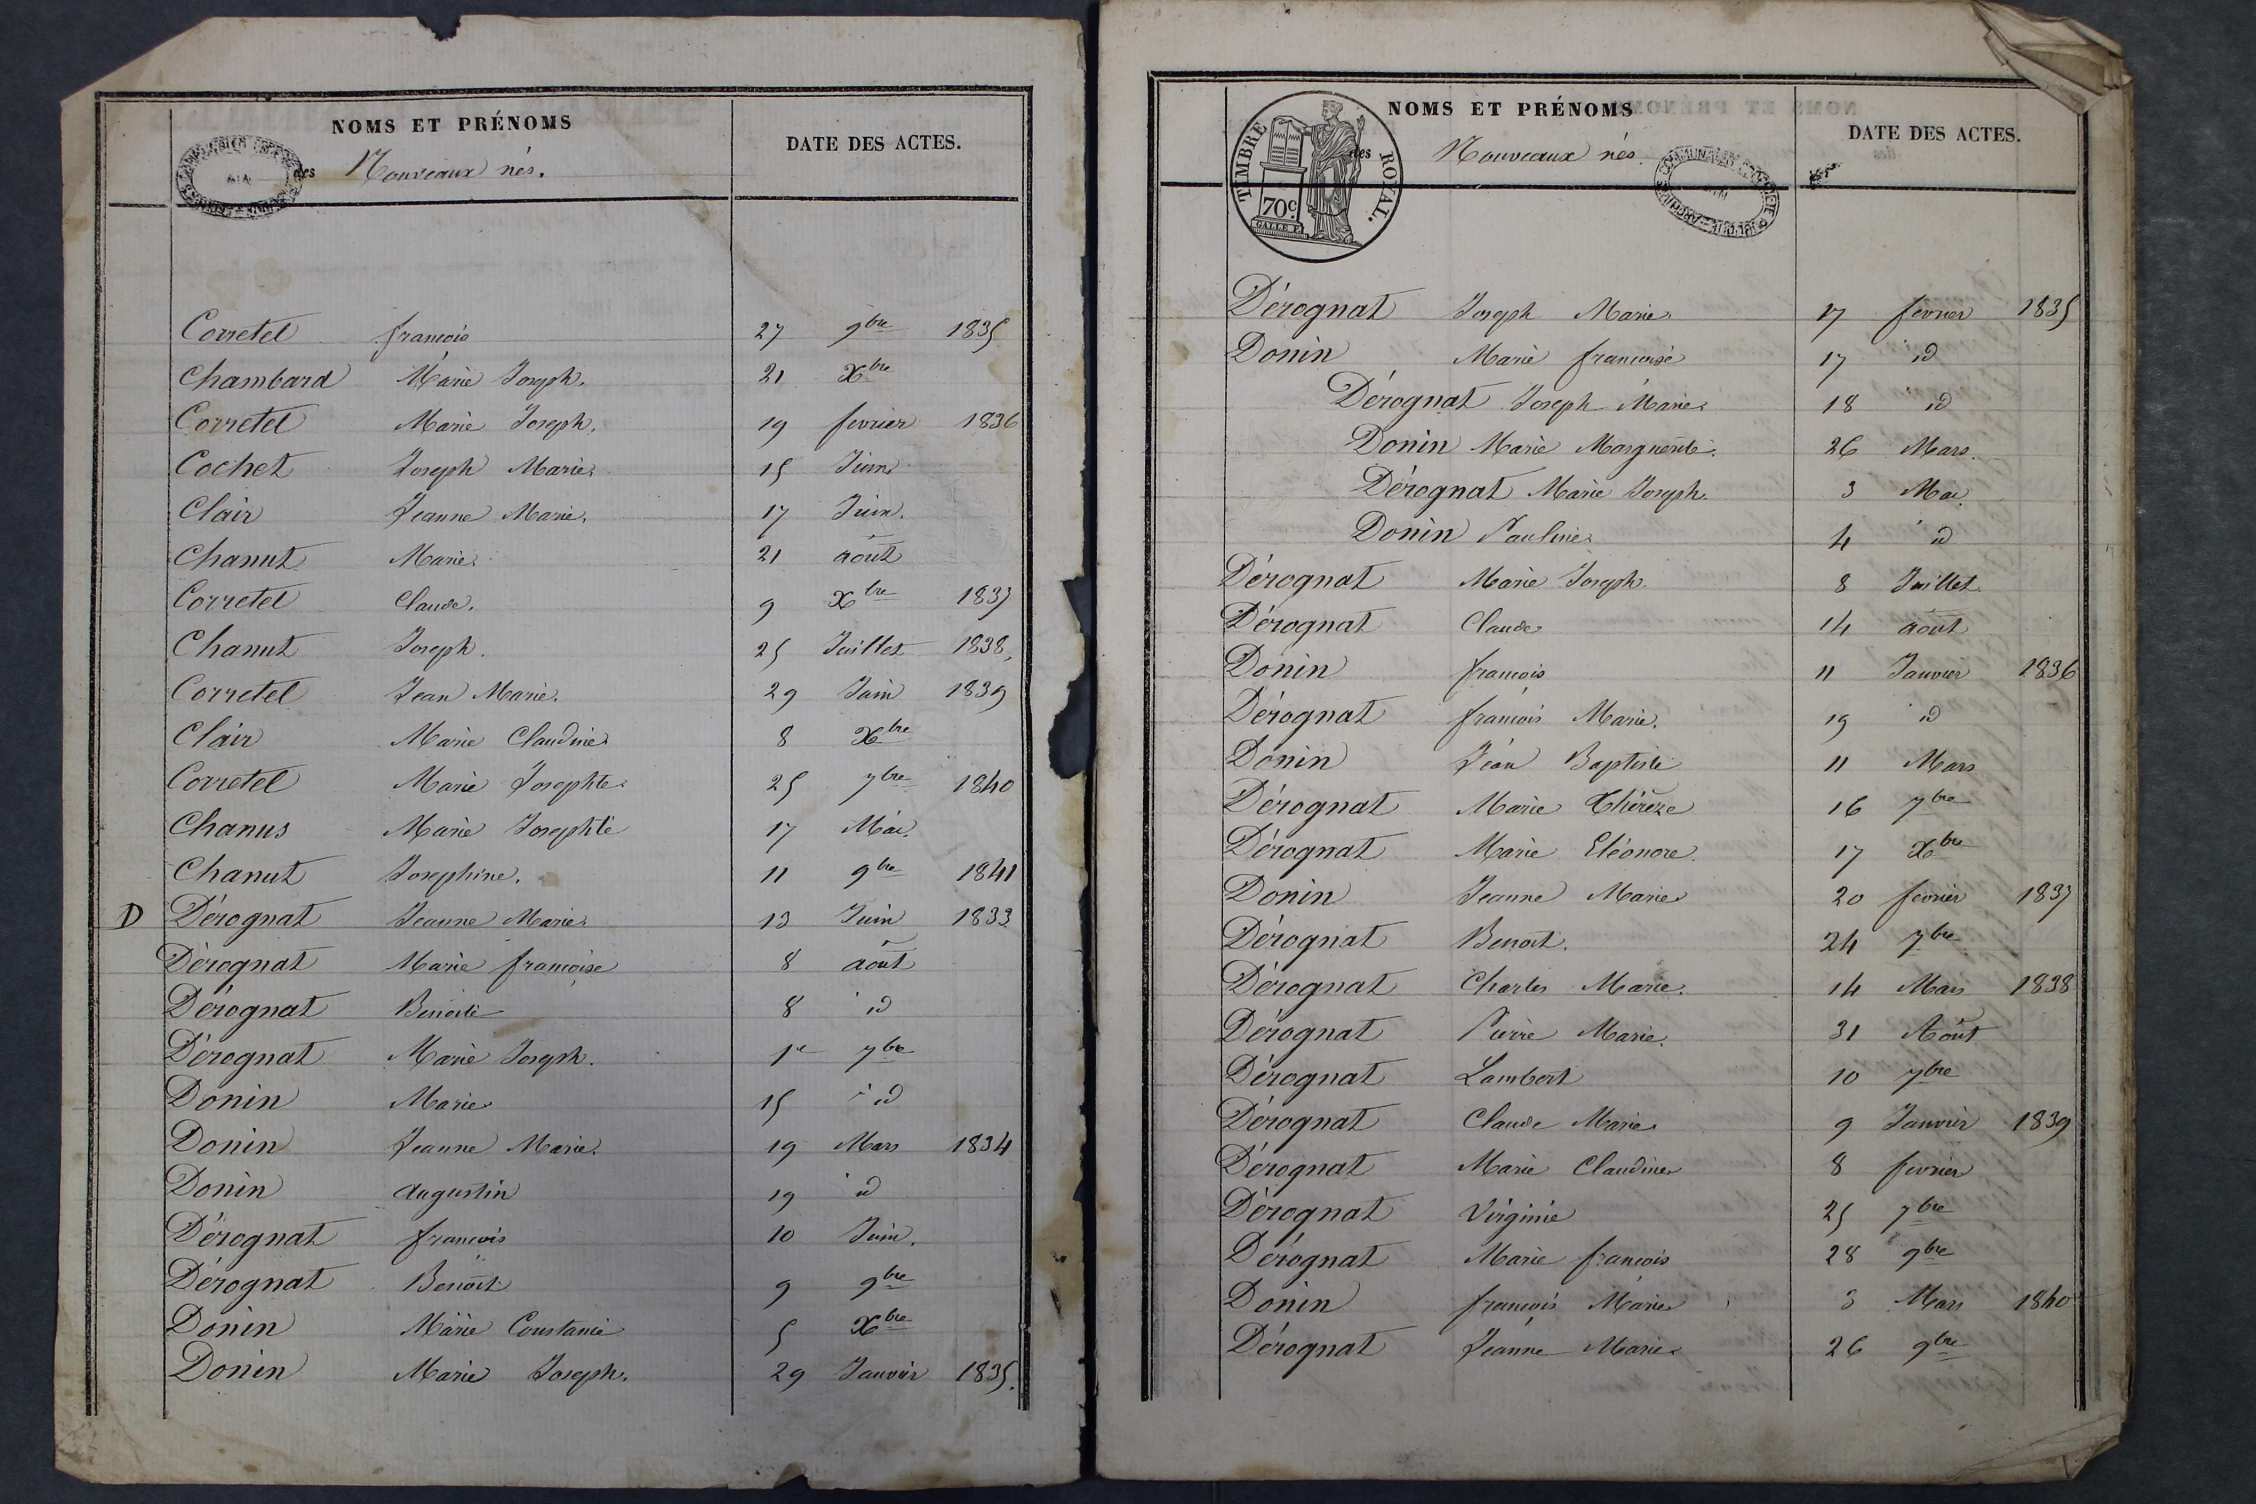 NOMS ET PRÉNOMS
DATE DES ACTES.
des Nouveaux nés.
Corretel françois 27 9bre 1835
Chambard Marie Joseph. 21 Xbre
Corretel Marie Joseph. 19 fevrier 1836
Cochet Joseph Marie 15 Juin
Clair Jeanne Marie. 17 Juin.
Chanut Marie 21 août
Corretel Claude. 9 Xbre 1837
Chanut Joseph. 25 Juillet 1838
Corretel Jean Marie. 29 Juin 1839
Clair Marie Claudine 8 Xbre
Corretel Marie Josephte 25 7bre 1840
Chanus Marie Josephte 17 Mai
Chanut Josephine. 11 9bre 1841
D Dérognat Jeanne Marie 13 Juin 1833
Dérognat Marie françoise 8 août
Dérognat Benoite 8 id
Dérognat Marie Joseph. 1er 7bre
Donin Marie 15 id
Donin Jeanne Marie. 19 Mars 1834
Donin augustin 19 id
Dérognat francois 10 Juin.
Dérognat Benoit 9 9bre
Donin Marie Constance 5 Xbre
Donin Marie Joseph. 29 Janvier 1835.
NOMS ET PRÉNOMS
DATE DES ACTES.
TIMBRE ROYAL.
70c.
des Nouveaux nés.
Dérognat Joseph Marie 17 fevrier 1835
Donin Marie francoise 17 id
Dérognat Joseph Marie 18 id
Donin Marie Marguerite. 26 Mars.
Dérognat Marie Joseph. 3 Mai
Donin Pauline 4 id
Dérognat Marie Joseph 8 Juillet
Dérognat Claude 14 août
Donin francois 11 Janvier 1836
Dérognat francois Marie. 19 id
Donin Jean Baptiste 11 Mars
Dérognat Marie Thérèze 16 7bre
Dérognat Marie Eléonore. 17 Xbre
Donin Jeanne Marie 20 fevrier 1837
Dérognat Benoit. 24 7bre
Dérognat Charles Marie. 14 Mars 1838
Dérognat Pierre Marie. 31 Août
Dérognat Lambert 10 7bre
Dérognat Claude Marie 9 Janvier 1839
Dérognat Marie Claudine 8 fevrier
Dérognat Virginie 25 7bre
Dérognat Marie francois 28 9bre
Donin francois Marie 3 Mars 1840
Dérognat Jeanne Marie 26 9bre